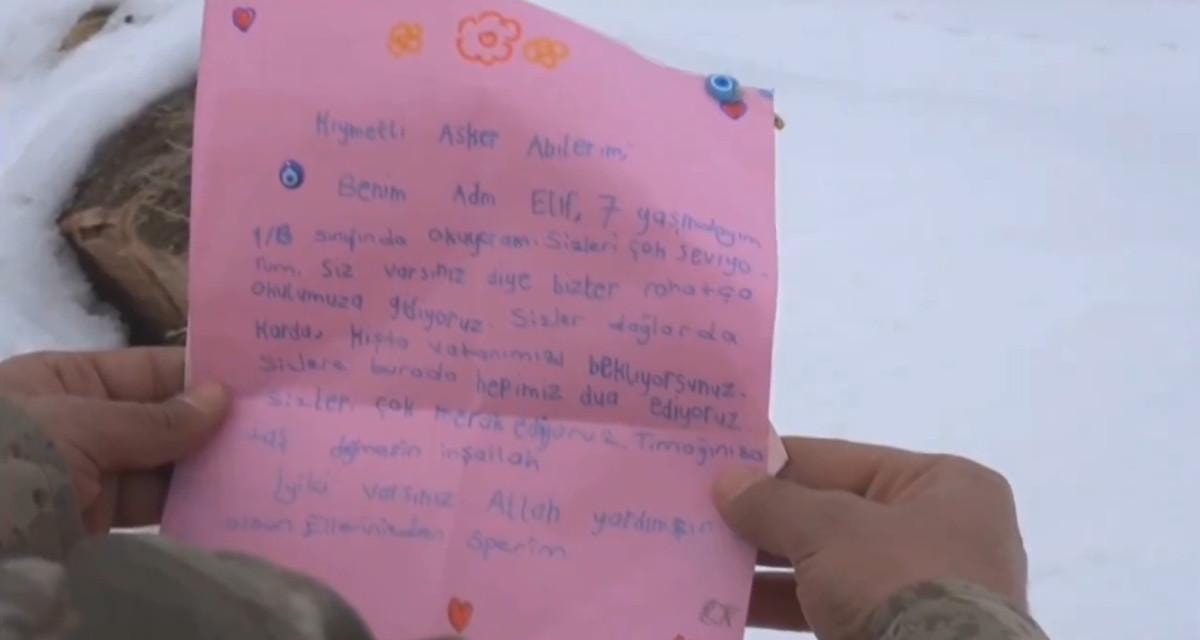 Kıymetli Asker Abilerim,
Benim Adım Elif, 7 yaşındayım
1/B sınıfında okuyorum. Sizleri çok seviyo-
rum. Siz varsınız diye bizler rahatça
okulumuza gidiyoruz. Sizler dağlarda
Karda, Kışta vatanımızı bekliyorsunuz.
Sizlere burada hepimiz dua ediyoruz
Sizleri çok merak ediyoruz. Tırnağınıza
taş değmesin inşallah
İyiki varsınız Allah yardımçın
olsun Ellerinizden öperim